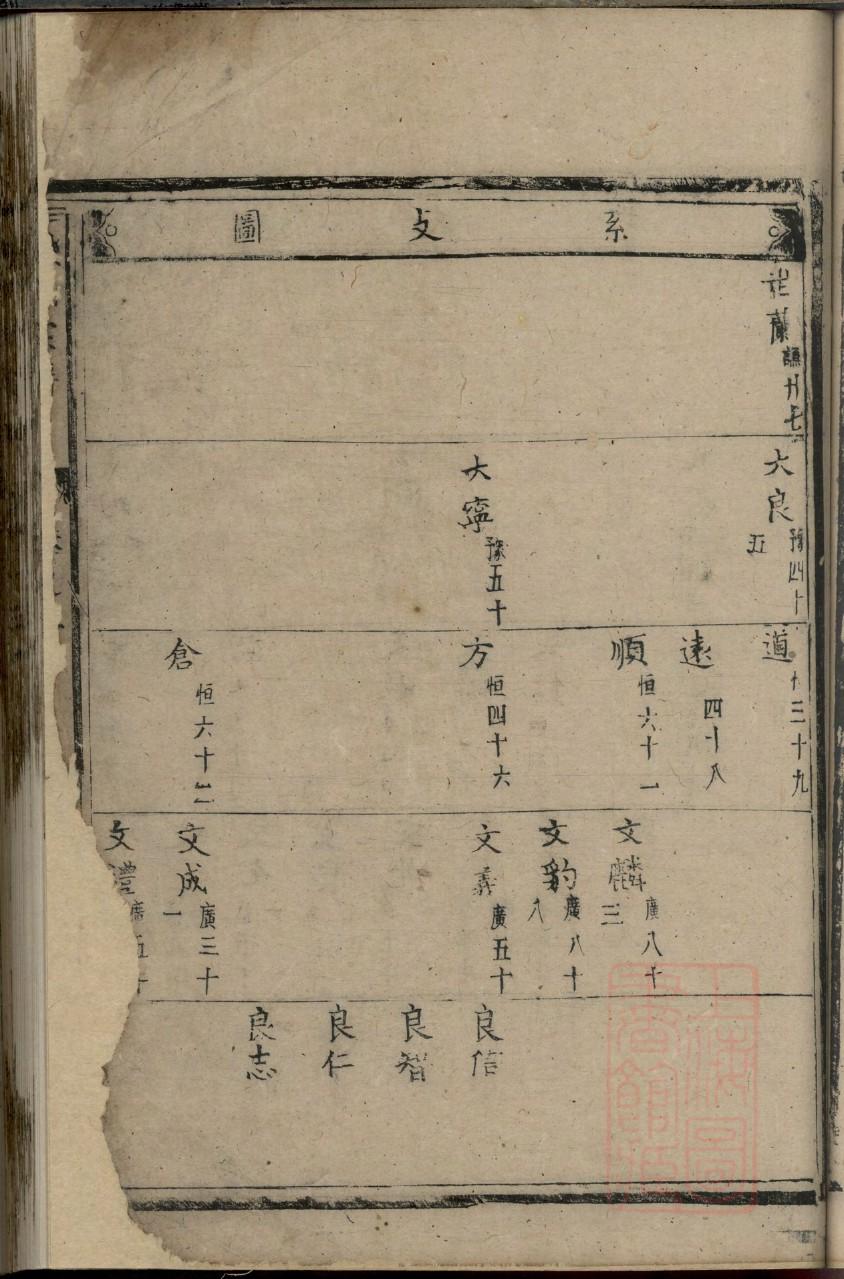 系支圖
祖蘭 謙廿七
大良 豫四十五
大寧 豫五十
道 恒三十九
遠 四十八
順 恒六十一
方 恒四十六
倉 恒六十二
文麟 廣八十三
文豹 廣八十八
文義 廣五十
文成 廣三十一
文禮 廣五十
良信
良智
良仁
良志
上海圖書館藏